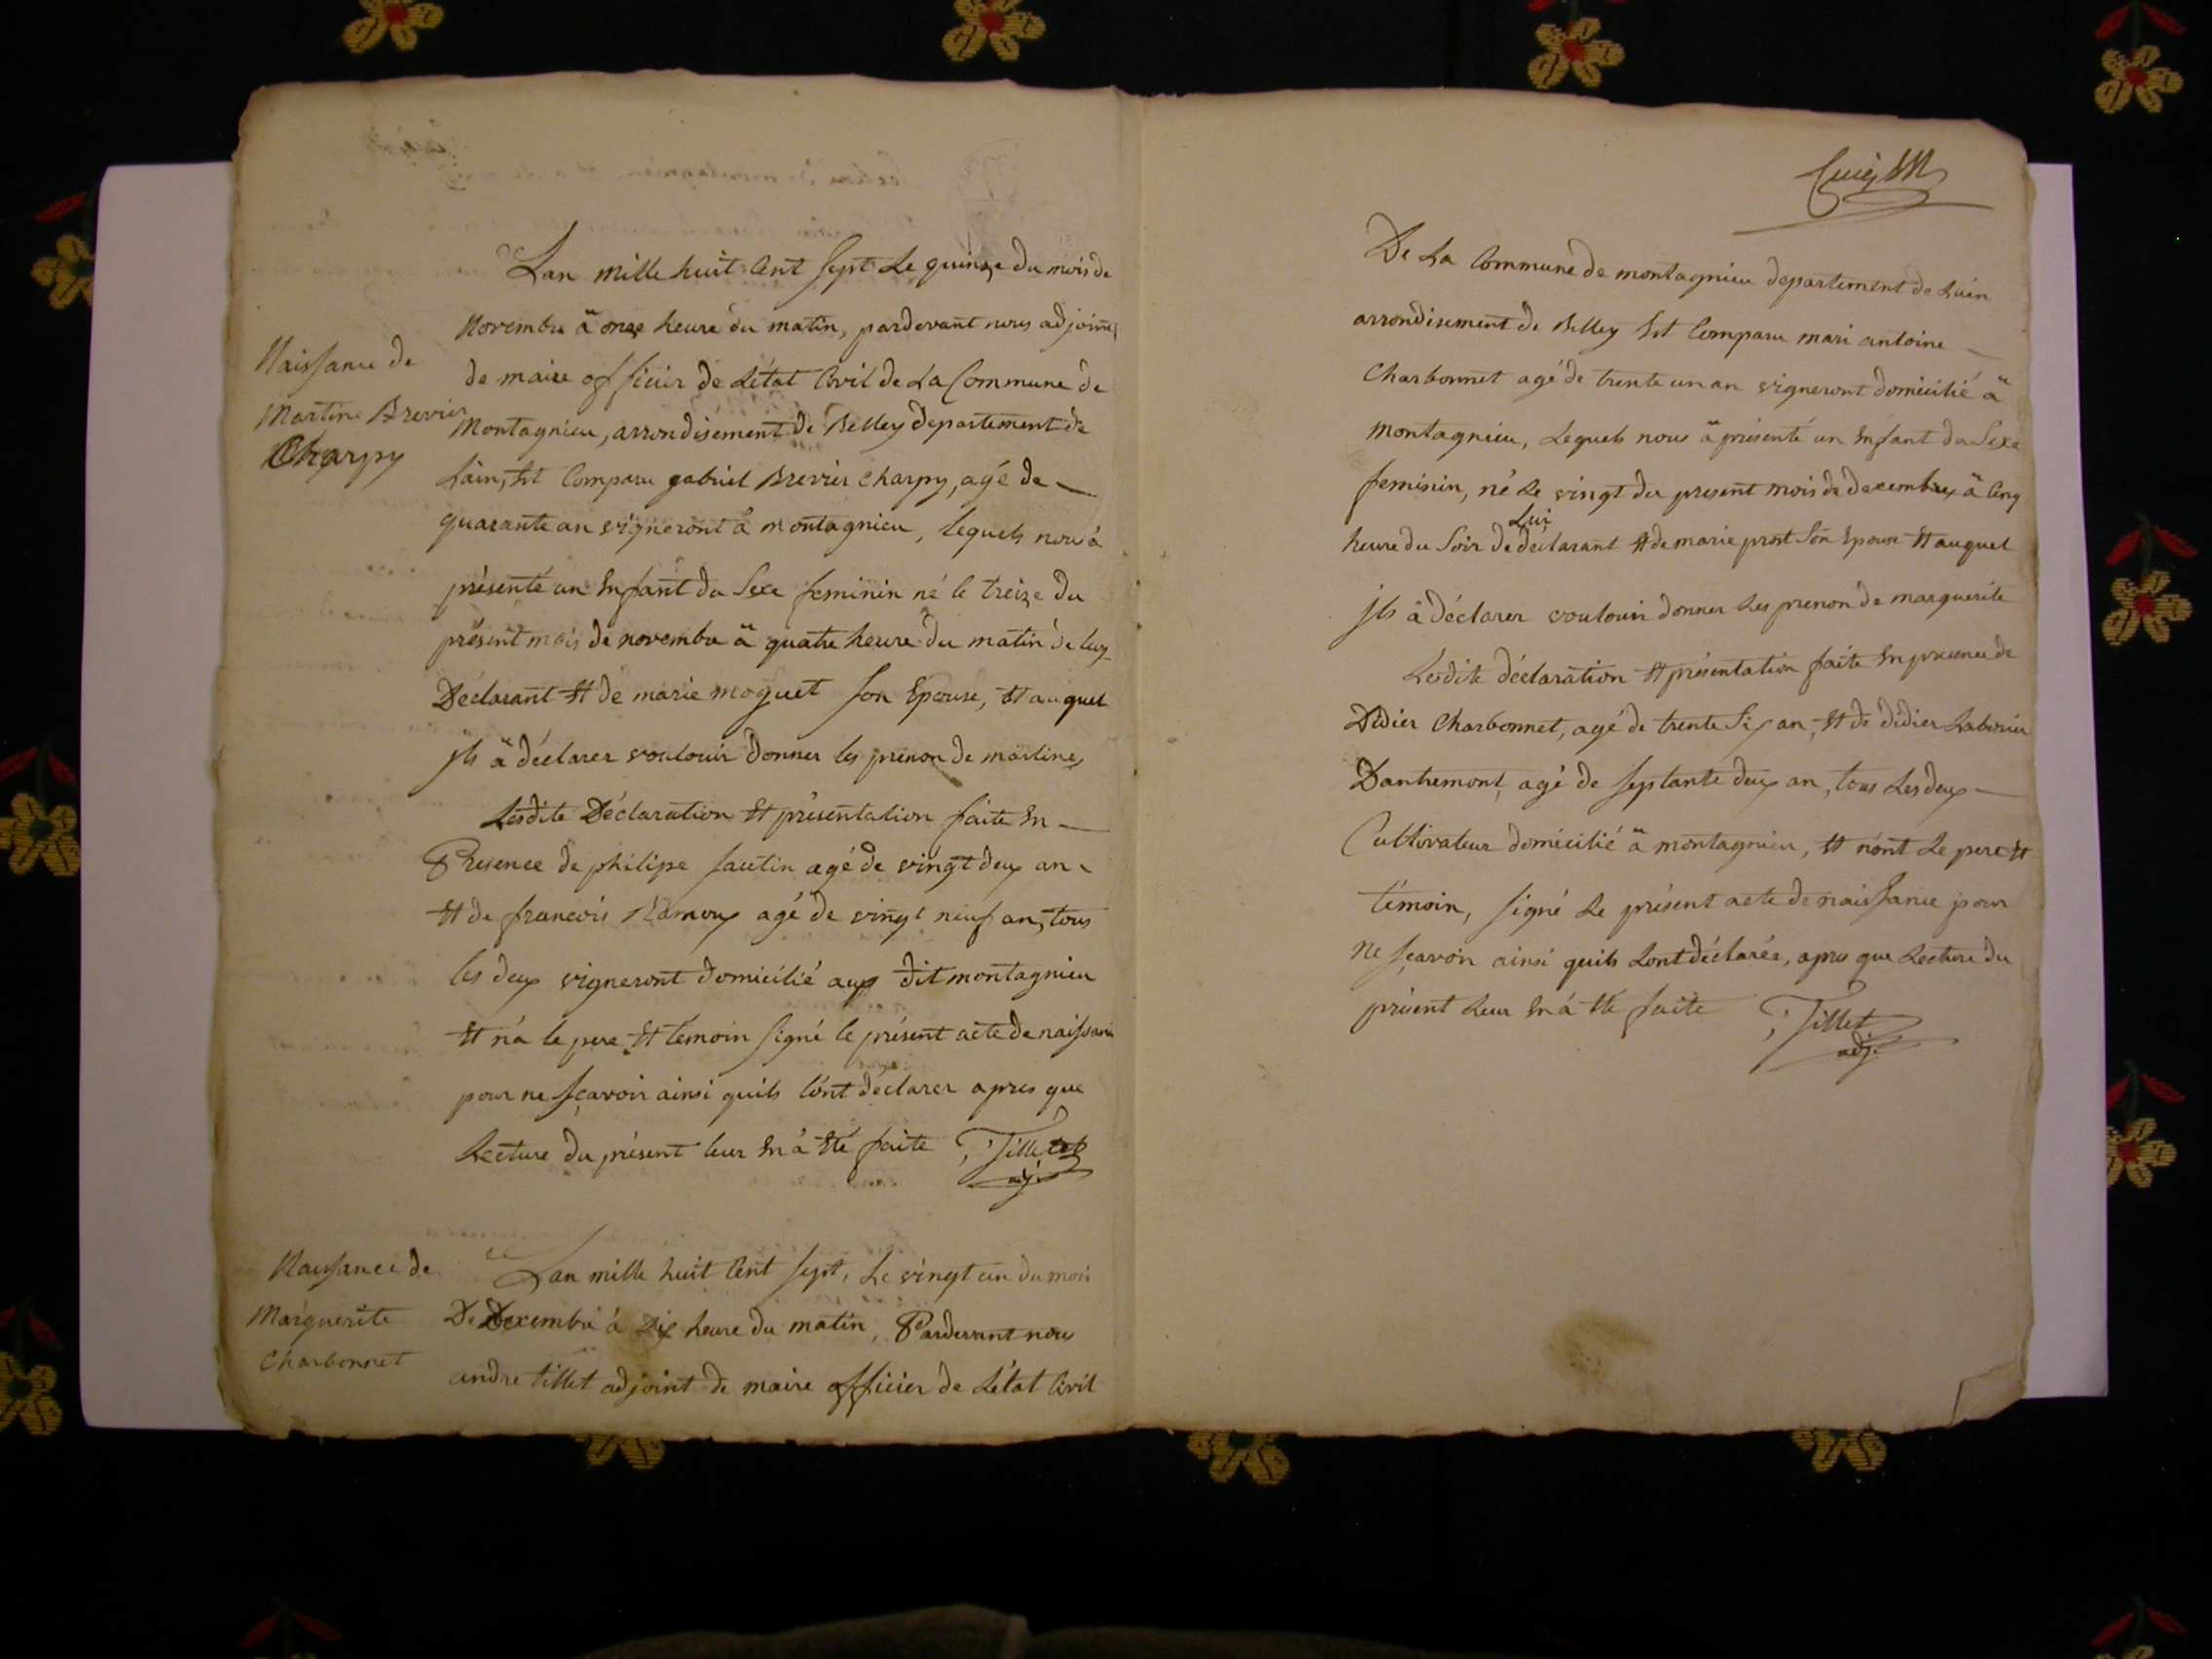 Lan mille huit Cent sept Le quinze du mois de
Novembre ä onze heure du matin, pardevant nous adjoint
de maire officier de Létat Civil de La Commune de
Montagnieu, arrondisement de Belley departement de
Lain, Est Comparu gabriel Brevier Charpy, agé de
quarante an vigneront à montagnieu, lequels nou à
présenté un Enfant du Sexe feminin né le treize du
présent mois de novembre ä quatre heure du matin de luy
Déclarant Et de marie moguet son Epouse, Et auquel
jls ä déclarer voulouir donner les prenon de martine
Lesdite Déclaration Et présentation faite En
Presence de philipe sautin agé de vingt deux an
Et de francois Ramoux agé de vingt neuf an, tous
les deux vigneront domicilié aux dit montagnieu
Et n'a le pere Et témoin signé le présent acte de naissance
pour ne sçavoir ainsi quils lônt déclarer apres que
Lecture du présent leur En à Eté faite ; Tillet
adj.
Naissance de
Martine Brevier
Charpy
Naissance de
Marguerite
Charbonnet
Lan mille huit Cent sept, Le vingt un du mois
De Decembre à Dix heure du matin, Pardevant nous
andre tillet adjoint de maire officier de Létat Civil
De La Commune de montagnieu departement de Lain
arrondisement de Belley Est Comparu mari antoine
Charbonnet agé de trente un an vigneront domicilié ä
montagnieu, Lequels nous ä présenté un Enfant du Sexe
feminin, né Le vingt du present mois de decembre ä Cinq
Lui
heure du Soir de déclarant Et de marie prost Son Epouse Et auquel
jls ä déclarer voulouir donner Les prenon de marguerite
Lesdite déclaration Et présentation faite En presence de
Didier Charbonnet, agé de trente Six an, Et de didier Laborier
Danthemont, agé de septante deux an, tous Les deux
Cultivateur domicilié ä montagnieu, Et nônt Le pere Et
témoin, signé Le présent acte de naissance pour
ne sçavoir ainsi quils Lont déclarée, apres que Lecture du
présent Leur En á Eté faite ; Tillet
adj.